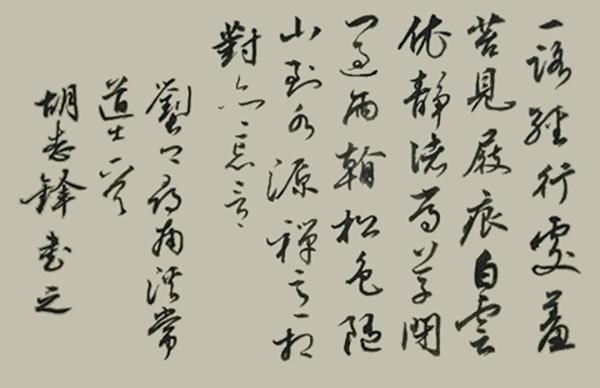 一路經行處
苔見屐痕白雲
依靜渚芳草閉
過雨松色隨
山到水源禪相
對亦忘言
劉尋南溪常
道士一首
胡志鋒書之